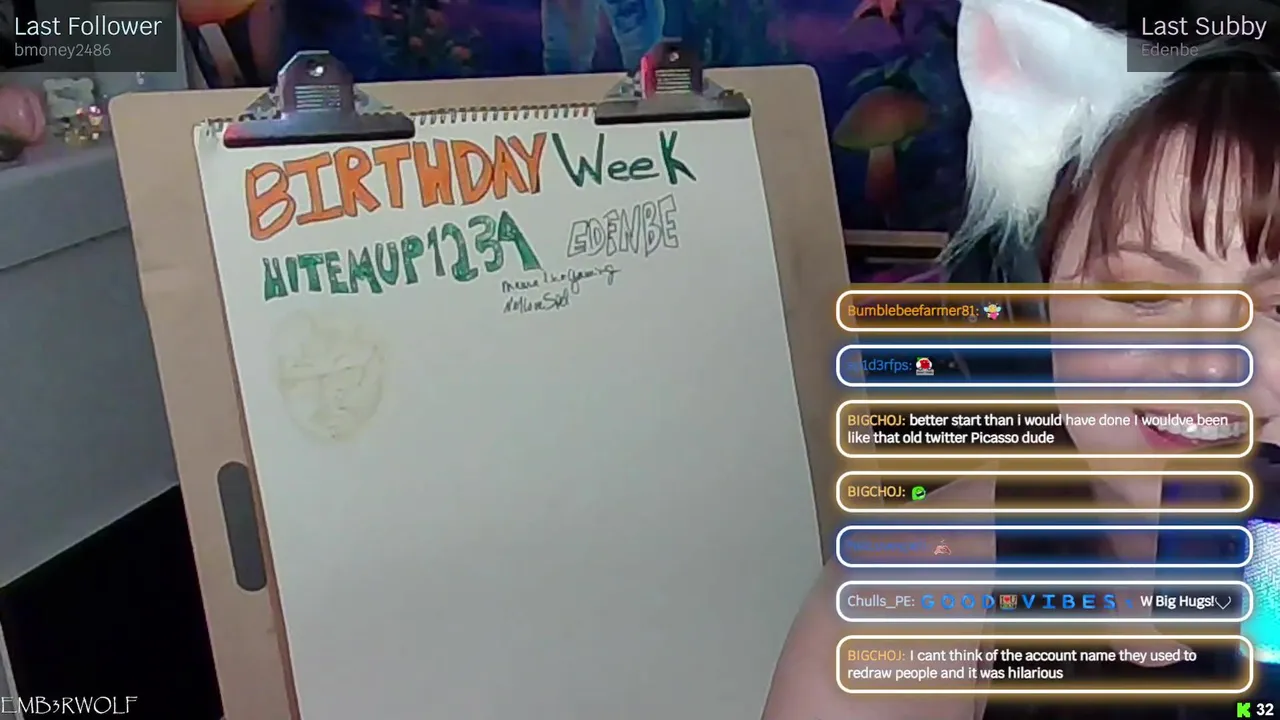 Last Follower
bmoney2486
Last Subby
Edenbe
BIRTHDAY Week
HITEMUP1234 EDENBE
Gaming
Bumblebeefarmer81:
1d3rfps:
BIGCHOJ: better start than i would have done I wouldve been
like that old twitter Picasso dude
BIGCHOJ:
Chulls_PE: G O O D V I B E S W Big Hugs!
BIGCHOJ: I cant think of the account name they used to
redraw people and it was hilarious
EMB3RWOLF
32